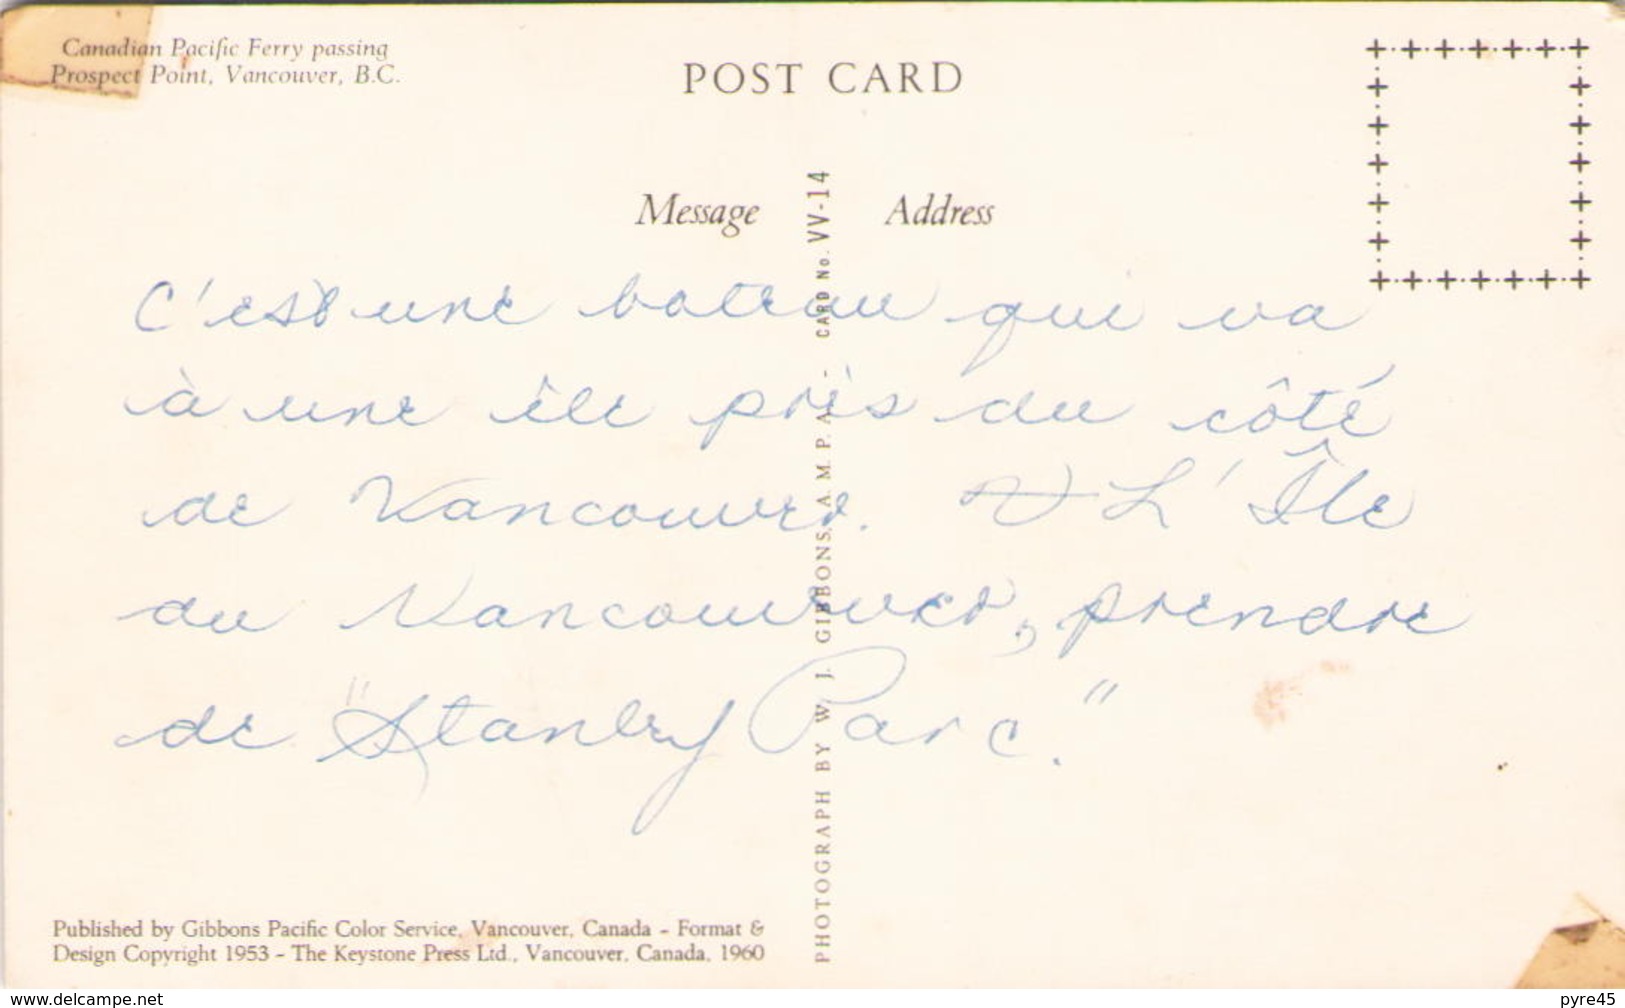 Canadian Pacific Ferry passing
Prospect Point, Vancouver, B.C.
POST CARD
Message
Address
C'est une bateau qui va
à une île près du côté
de Vancouver. L'Île
du Vancouver, prendre
de "Stanley Parc."
PHOTOGRAPH BY W. J. GIBBONS, A.M.P.A. - CARD No. VV-14
Published by Gibbons Pacific Color Service, Vancouver, Canada - Format &
Design Copyright 1953 - The Keystone Press Ltd., Vancouver, Canada, 1960
www.delcampe.net
pyre45